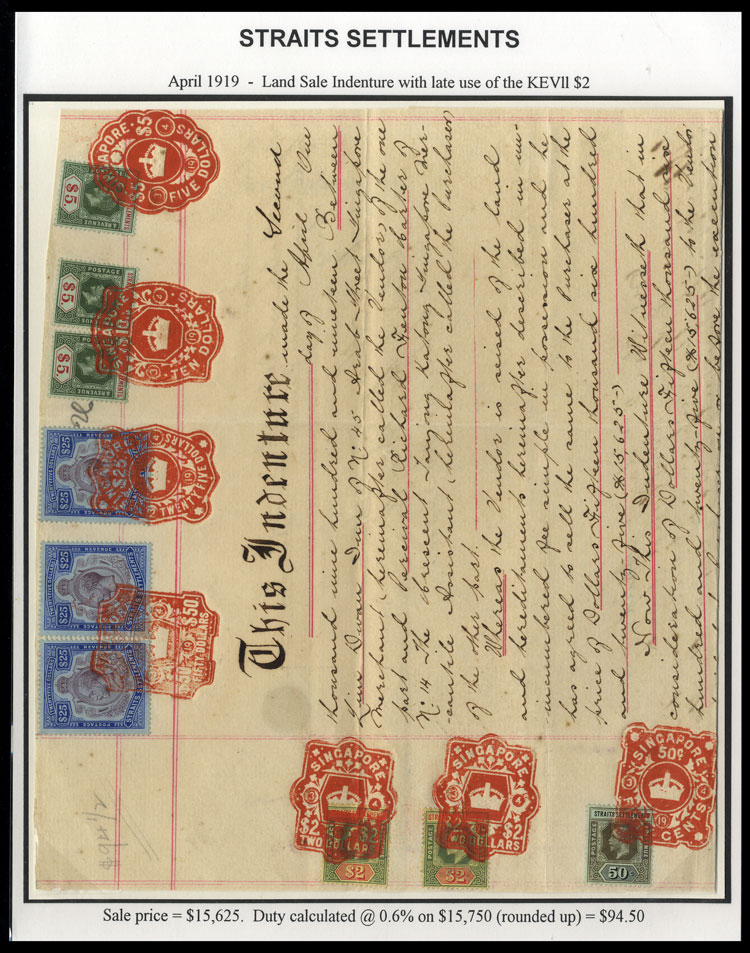 STRAITS SETTLEMENTS
April 1919 - Land Sale Indenture with late use of the KEVll $2
This Indenture made the Second
day of April One
thousand nine hundred and nineteen Between
of No. 45 Arab Street Singapore
Merchant (hereinafter called the Vendor) of the one
part and Percival Richard Fenton Barker of
No. 14 The Crescent Tanjong Katong Singapore Mer-
cantile Assistant (hereinafter called the Purchaser)
of the other part.
Whereas the Vendor is seised of the land
and hereditaments hereinafter described in un-
incumbered fee simple in possession and he
has agreed to sell the same to the Purchaser at the
price of Dollars Fifteen thousand six hundred
and twenty five ($15625-)
Now This Indenture Witnesseth that in
consideration of Dollars Fifteen thousand six
hundred and twenty-five ($15625-) to the Vendor
on or before the execution
SINGAPORE
$5
FIVE DOLLARS
$5.
POSTAGE
& REVENUE
TEN DOLLARS
$5.
$5.
$25
TWENTY FIVE DOLLARS
$25
$50
FIFTY DOLLARS
$25
$25
STRAITS SETTLEMENTS
POSTAGE
SINGAPORE
$2
TWO DOLLARS
$2
SINGAPORE
$2
TWO DOLLARS
$2
SINGAPORE
50c
CENTS
STRAITS SETTLEMENTS
POSTAGE
50c
Sale price = $15,625. Duty calculated @ 0.6% on $15,750 (rounded up) = $94.50